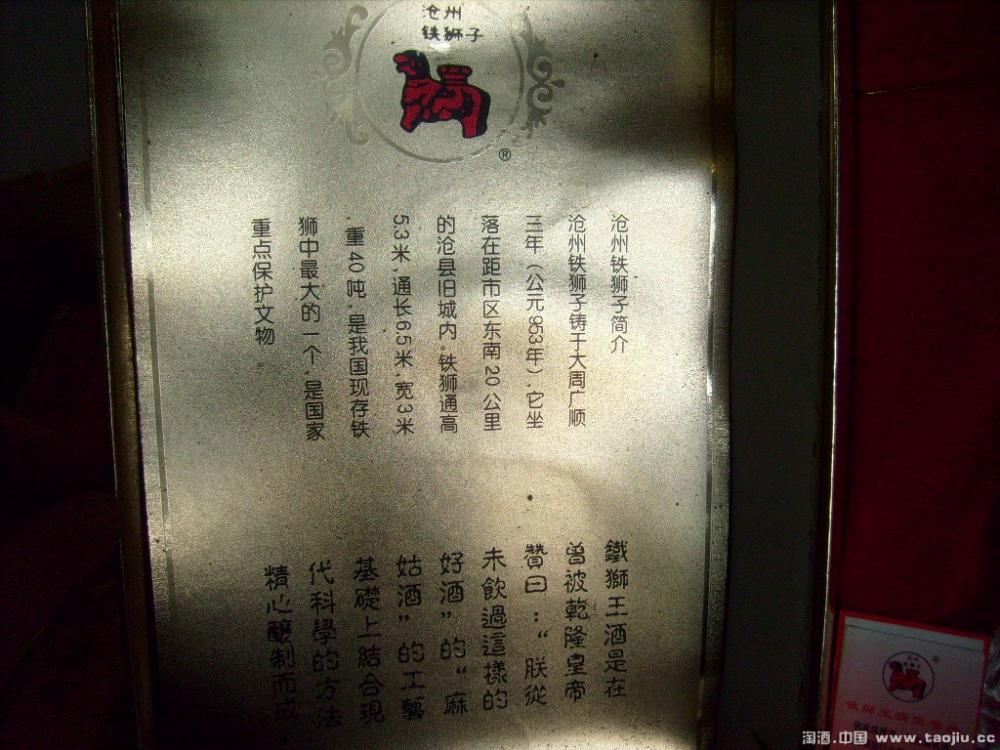 沧州
铁狮子
®
沧州铁狮子简介
沧州铁狮子铸于大周广顺
三年（公元953年），它坐
落在距市区东南20公里
的沧县旧城内。铁狮通高
5.3米，通长6.5米，宽3米
，重40吨，是我国现存铁
狮中最大的一个，是国家
重点保护文物。
鐵獅王酒是在
曾被乾隆皇帝
贊曰：“朕從
未飲過這樣的
好酒”的“麻
姑酒”的工藝
基礎上結合現
代科學的方法
精心釀制而成
淘酒.中国 www.taojiu.cc